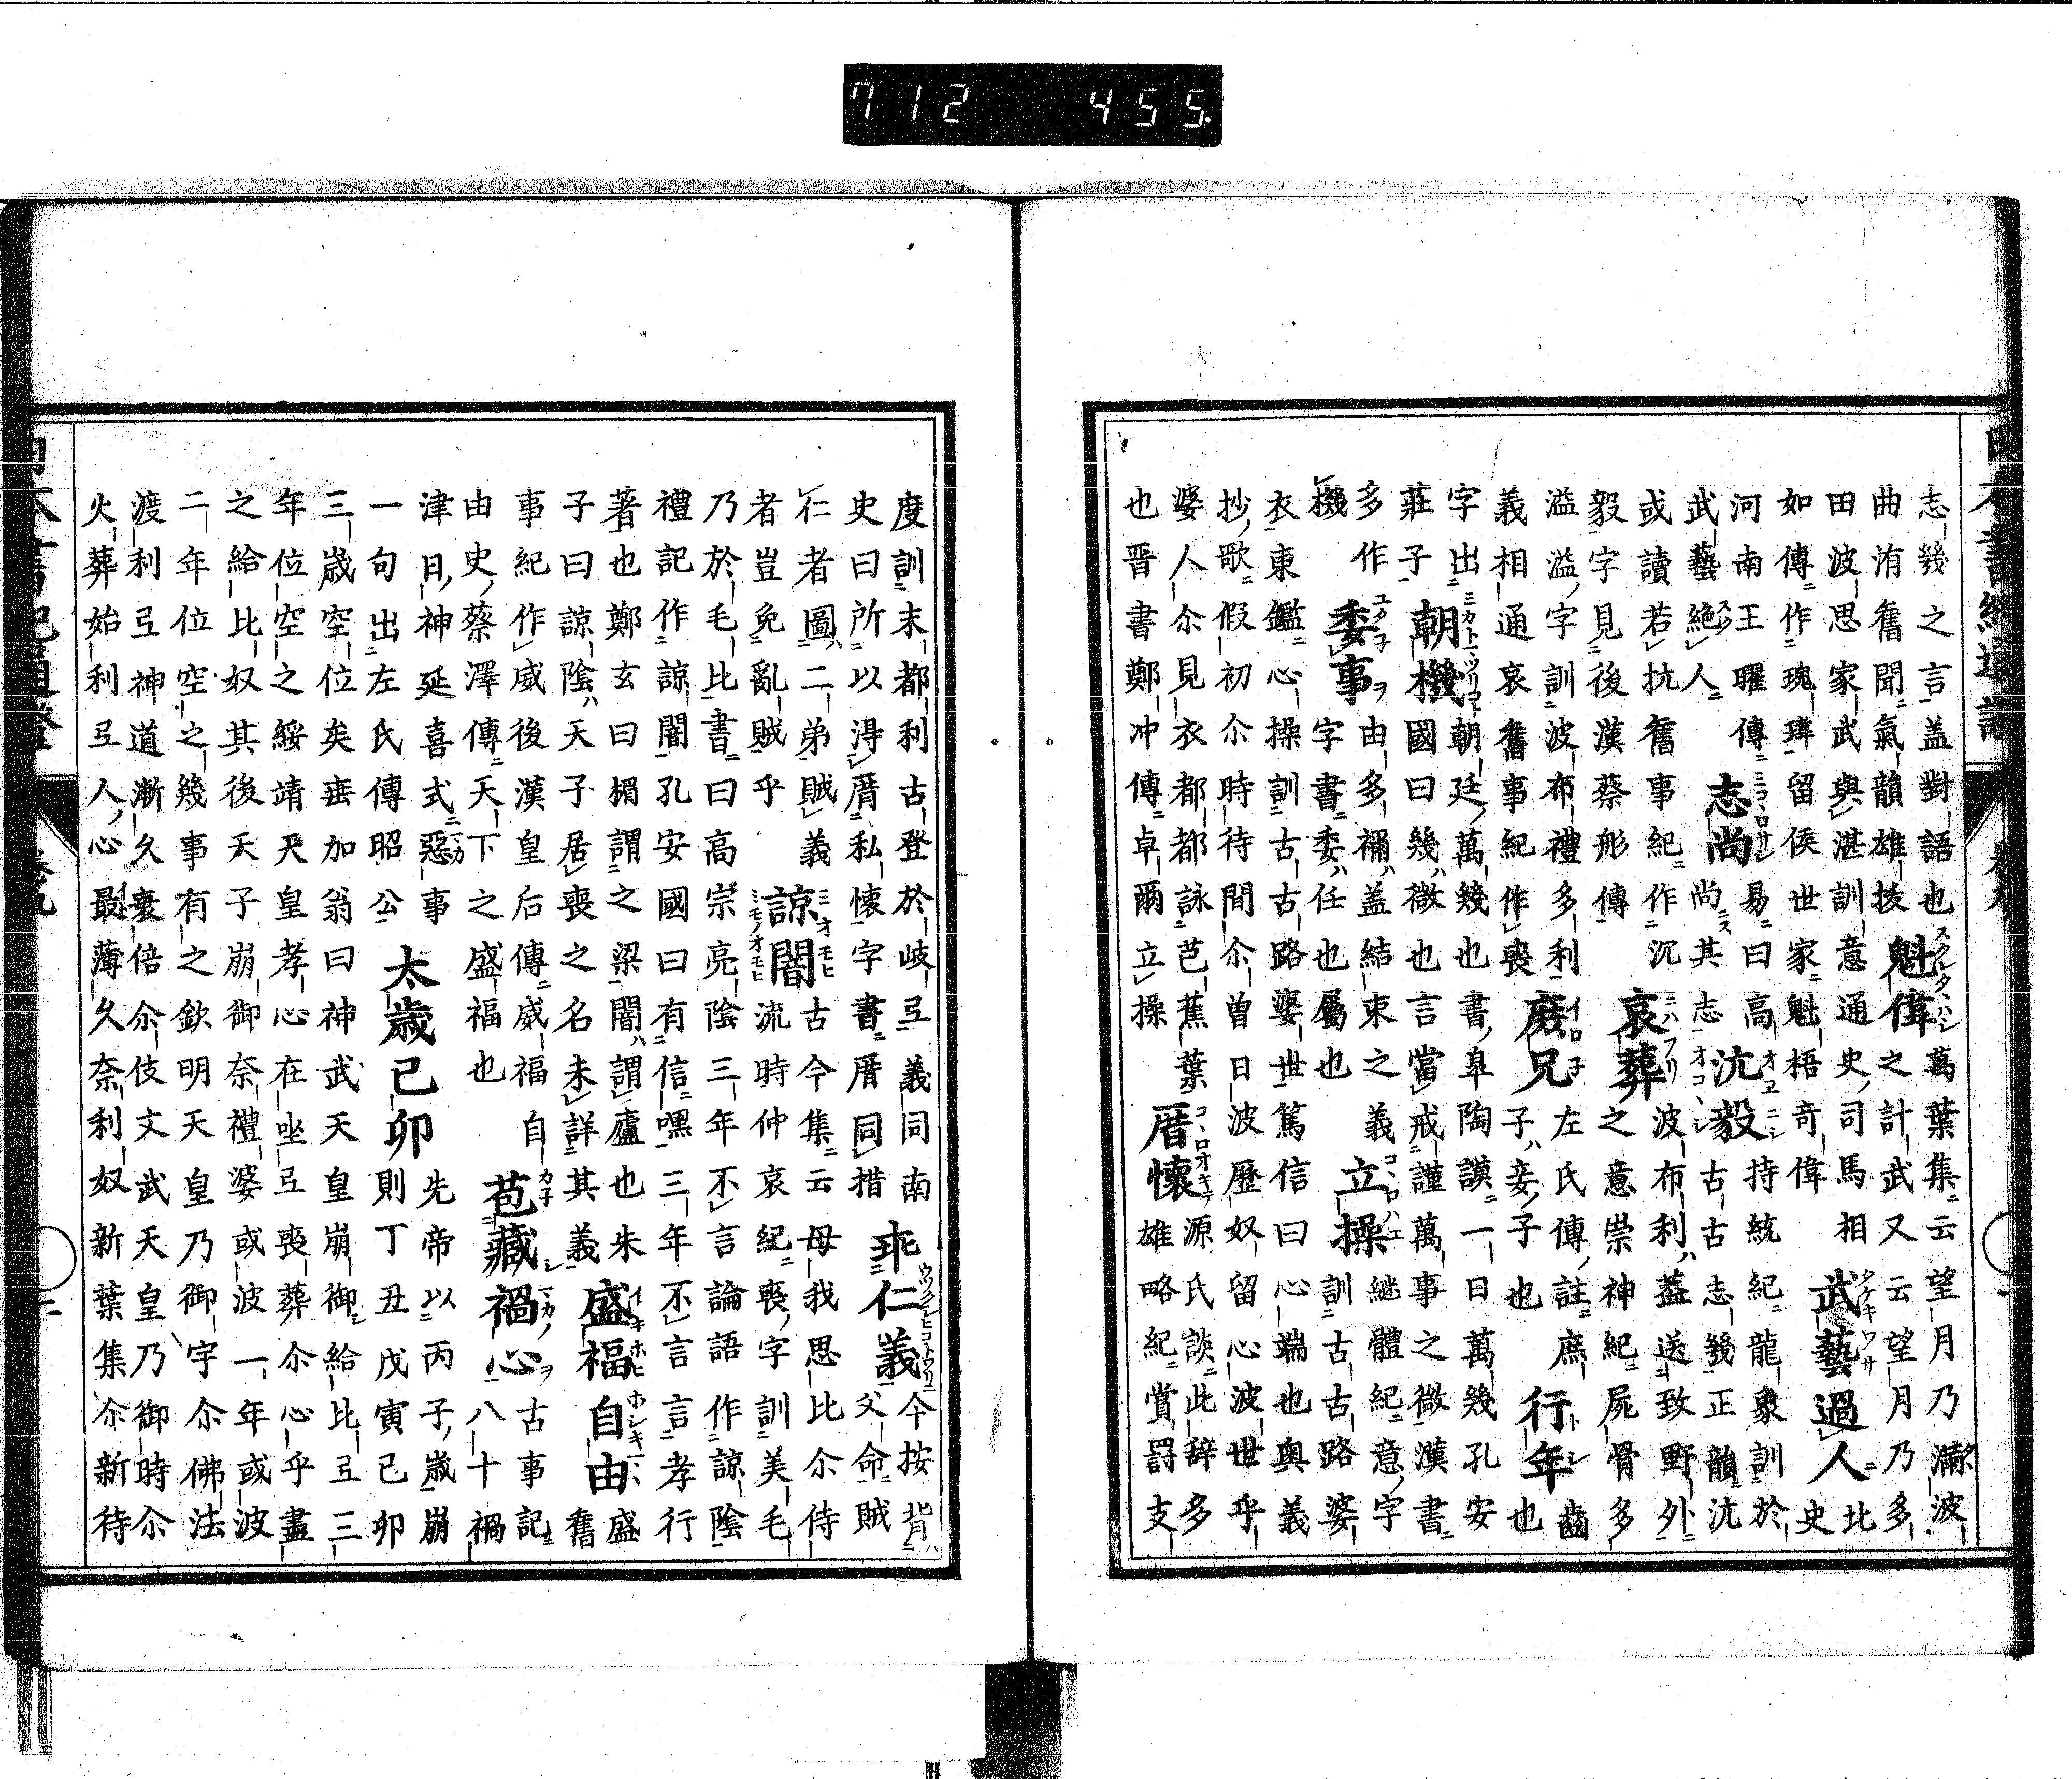 志幾之言蓋對語也
曲洧舊聞氣韻雄拔
魁偉
萬葉集云望月乃滿波
之計武又云望月乃多
田波思家武與湛訓意通史司馬相
如傳作瑰瑋留侯世家魁梧奇偉
武藝過人
北
史
河南王曜傳
武藝絶人
志尚
易曰高
尚其志
沆毅
持統紀龍象訓於
古古志幾正韻沆
或讀若抗舊事紀作沉
毅字見後漢蔡邕傳
哀葬
波布利蓋送致野外
之意崇神紀屍骨多
溢溢字訓波布禮多利
義相通哀舊事紀作喪
庶兄
左氏傳註庶
子妾子子也
行年
齒
也
字出
莊子
朝機
朝廷萬幾也書皐陶謨一日萬幾孔安
國曰幾微也言當戒謹萬事之微漢書
多作
機
委事
由多禰蓋結束之義
字書委任也屬也
立操
繼體紀意字
訓古古路婆
衣東鑑心操訓古古路婆世篤信曰心端也與義
抄歌假初尒時待間尒曽日波歴奴留心波世乎
婆人尒見衣都都詠芭蕉葉
也晋書鄭冲傳卓爾立操
厝懷
源氏談此辞多
雄略紀賞罸支
度訓末都利古登於岐弖義同南
史曰所以淂厝私懷字書厝同措
乖仁義
今按背
父命賊
仁者圖二弟賊義
者豈免亂賊乎
諒闇
古今集云母我思比尒侍
流時仲哀紀喪字訓美毛
乃於毛比書曰高宗亮陰三年不言論語作諒陰
禮記作諒闇孔安國曰有信嘿三年不言言孝行
著也鄭玄曰楣謂之梁闇謂廬也朱
子曰諒陰天子居喪之名未詳其義
盛福自由
盛
舊
事紀作威後漢皇后傳威福自
由史蔡澤傳天下之盛福也
苞藏禍心
古事記
八十禍
津日神延喜式惡事
一句出左氏傳昭公
太歳己卯
先帝以丙子歳崩
則丁丑戊寅己卯
三歳空位矣垂加翁曰神武天皇崩御給比弖三
年位空之綏靖天皇孝心在坐弖喪葬尒心乎盡
之給比奴其後天子崩御奈禮婆或波一年或波
二年位空之幾事有之欽明天皇乃御宇尒佛法
渡利弖神道漸久衰倍尒伎文武天皇乃御時尒
火葬始利弖人心最薄久奈利奴新葉集尒新待
712 455